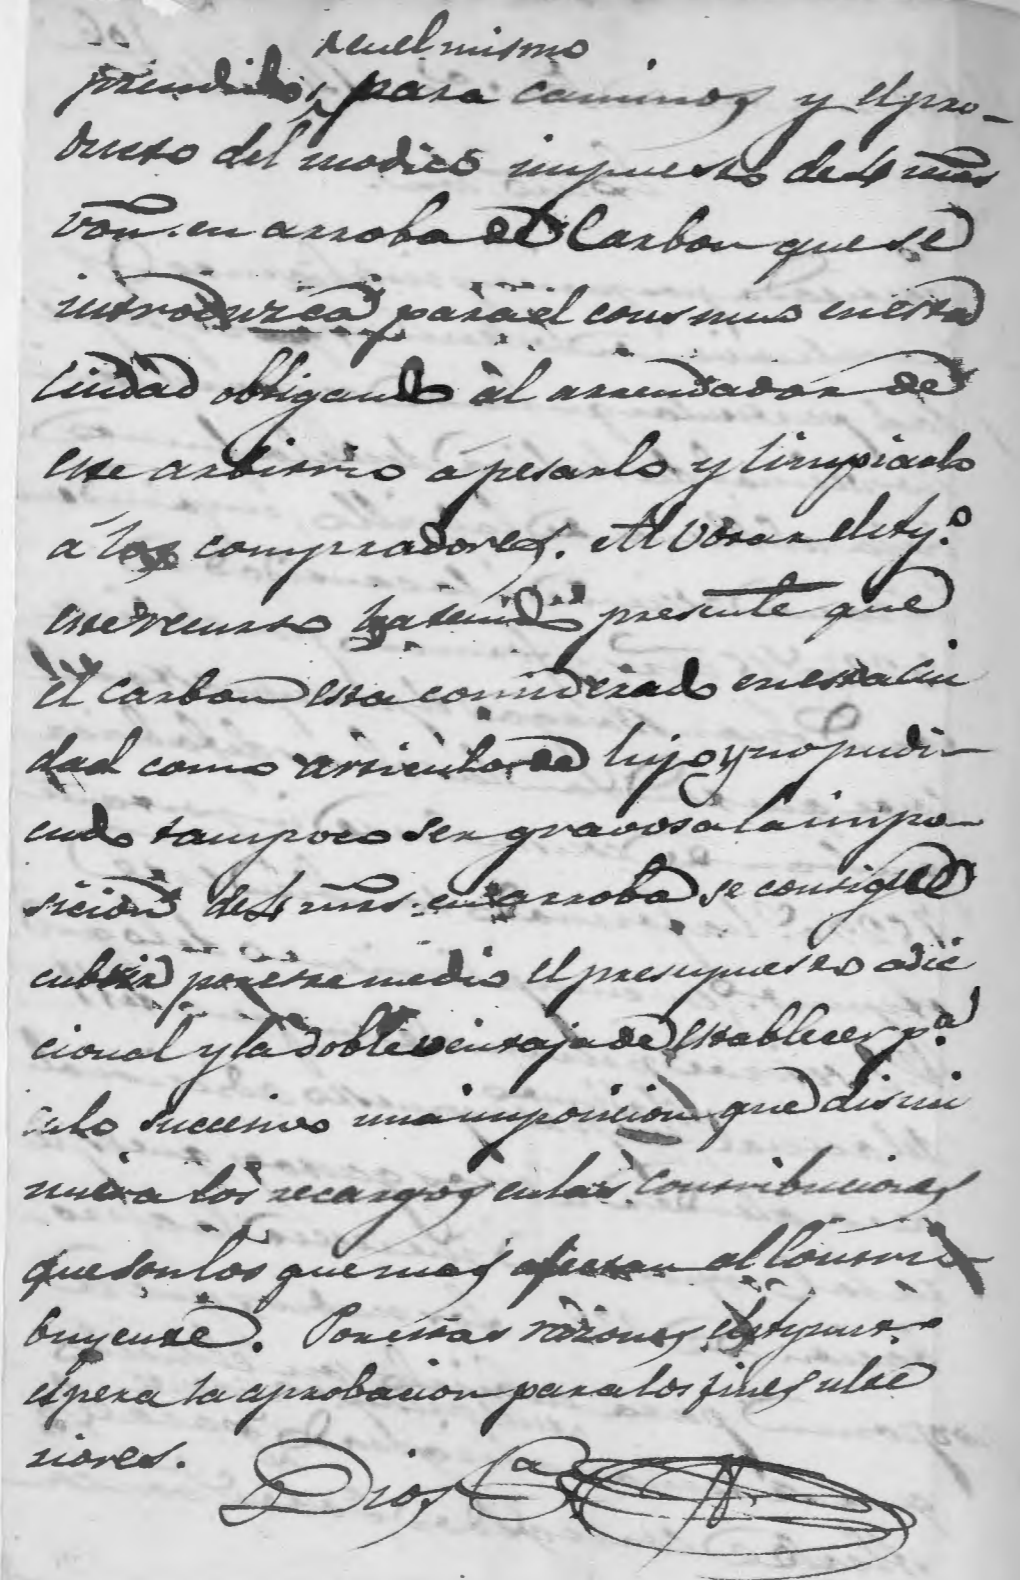 en el mismo
prendidos, para caminos y el pro-
ducto del modico impuesto de 4 mrs
von. en arroba de Carbon que se
introduzca para el consumo en esta
Ciudad obligando al arrendador de
este arbitrio a pesarlo y limpiarlo
á los compradores. Al votar el Ayo.
este recurso ha tenido presente que
el Carbon esta considerado en esta Ciu
dad como articulo de lujo y no pudi-
endo tampoco ser gravosa la impo-
sicion de 4 mrs. en arroba se consigue
cubrir por este medio el presupuesto adic
cional y la doble ventaja de establecer pa.
en lo succesivo una imposicion que dismi
nuira los recargos en las Contribuciones
que son los que mas afectan al Contri
buyente. Por estas razones el Aymto.
espera la aprobacion para los fines ulte
riores. Dios Ga